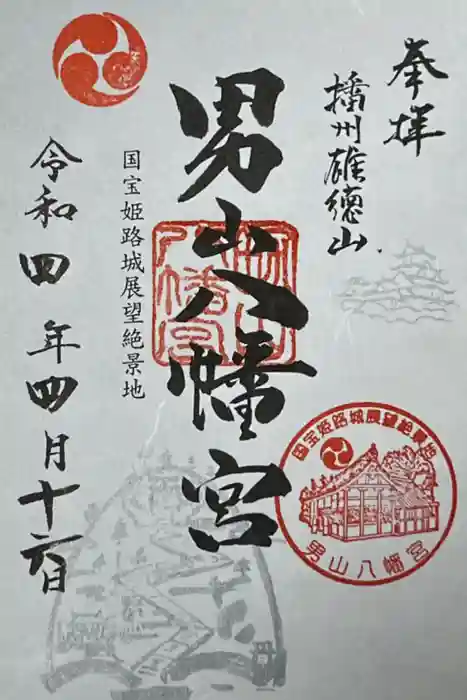 奉拝
播州雄徳山
男山八幡宮
国宝姫路城展望絶景地
令和四年四月十六日
男山八幡宮
国宝姫路城展望絶景地
男山八幡宮